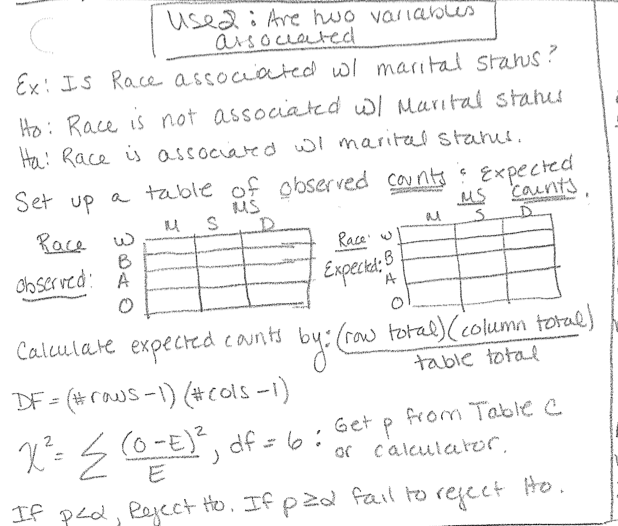 Use 2: Are two variables
associated
Ex: Is Race associated w/ marital status?
Ho: Race is not associated w/ Marital status
Ha: Race is associated w/ marital status.
Set up a table of observed counts & Expected
counts.
MS
M S D
Race W
observed: B
A
O
MS
M S D
Race: W
Expected: B
A
O
Calculate expected counts by: (row total)(column total)
table total
DF = (#rows-1)(#cols-1)
χ² = Σ (O-E)²/E, df = 6: Get p from Table C
or calculator.
If p<α, Reject Ho. If p≥α fail to reject Ho.